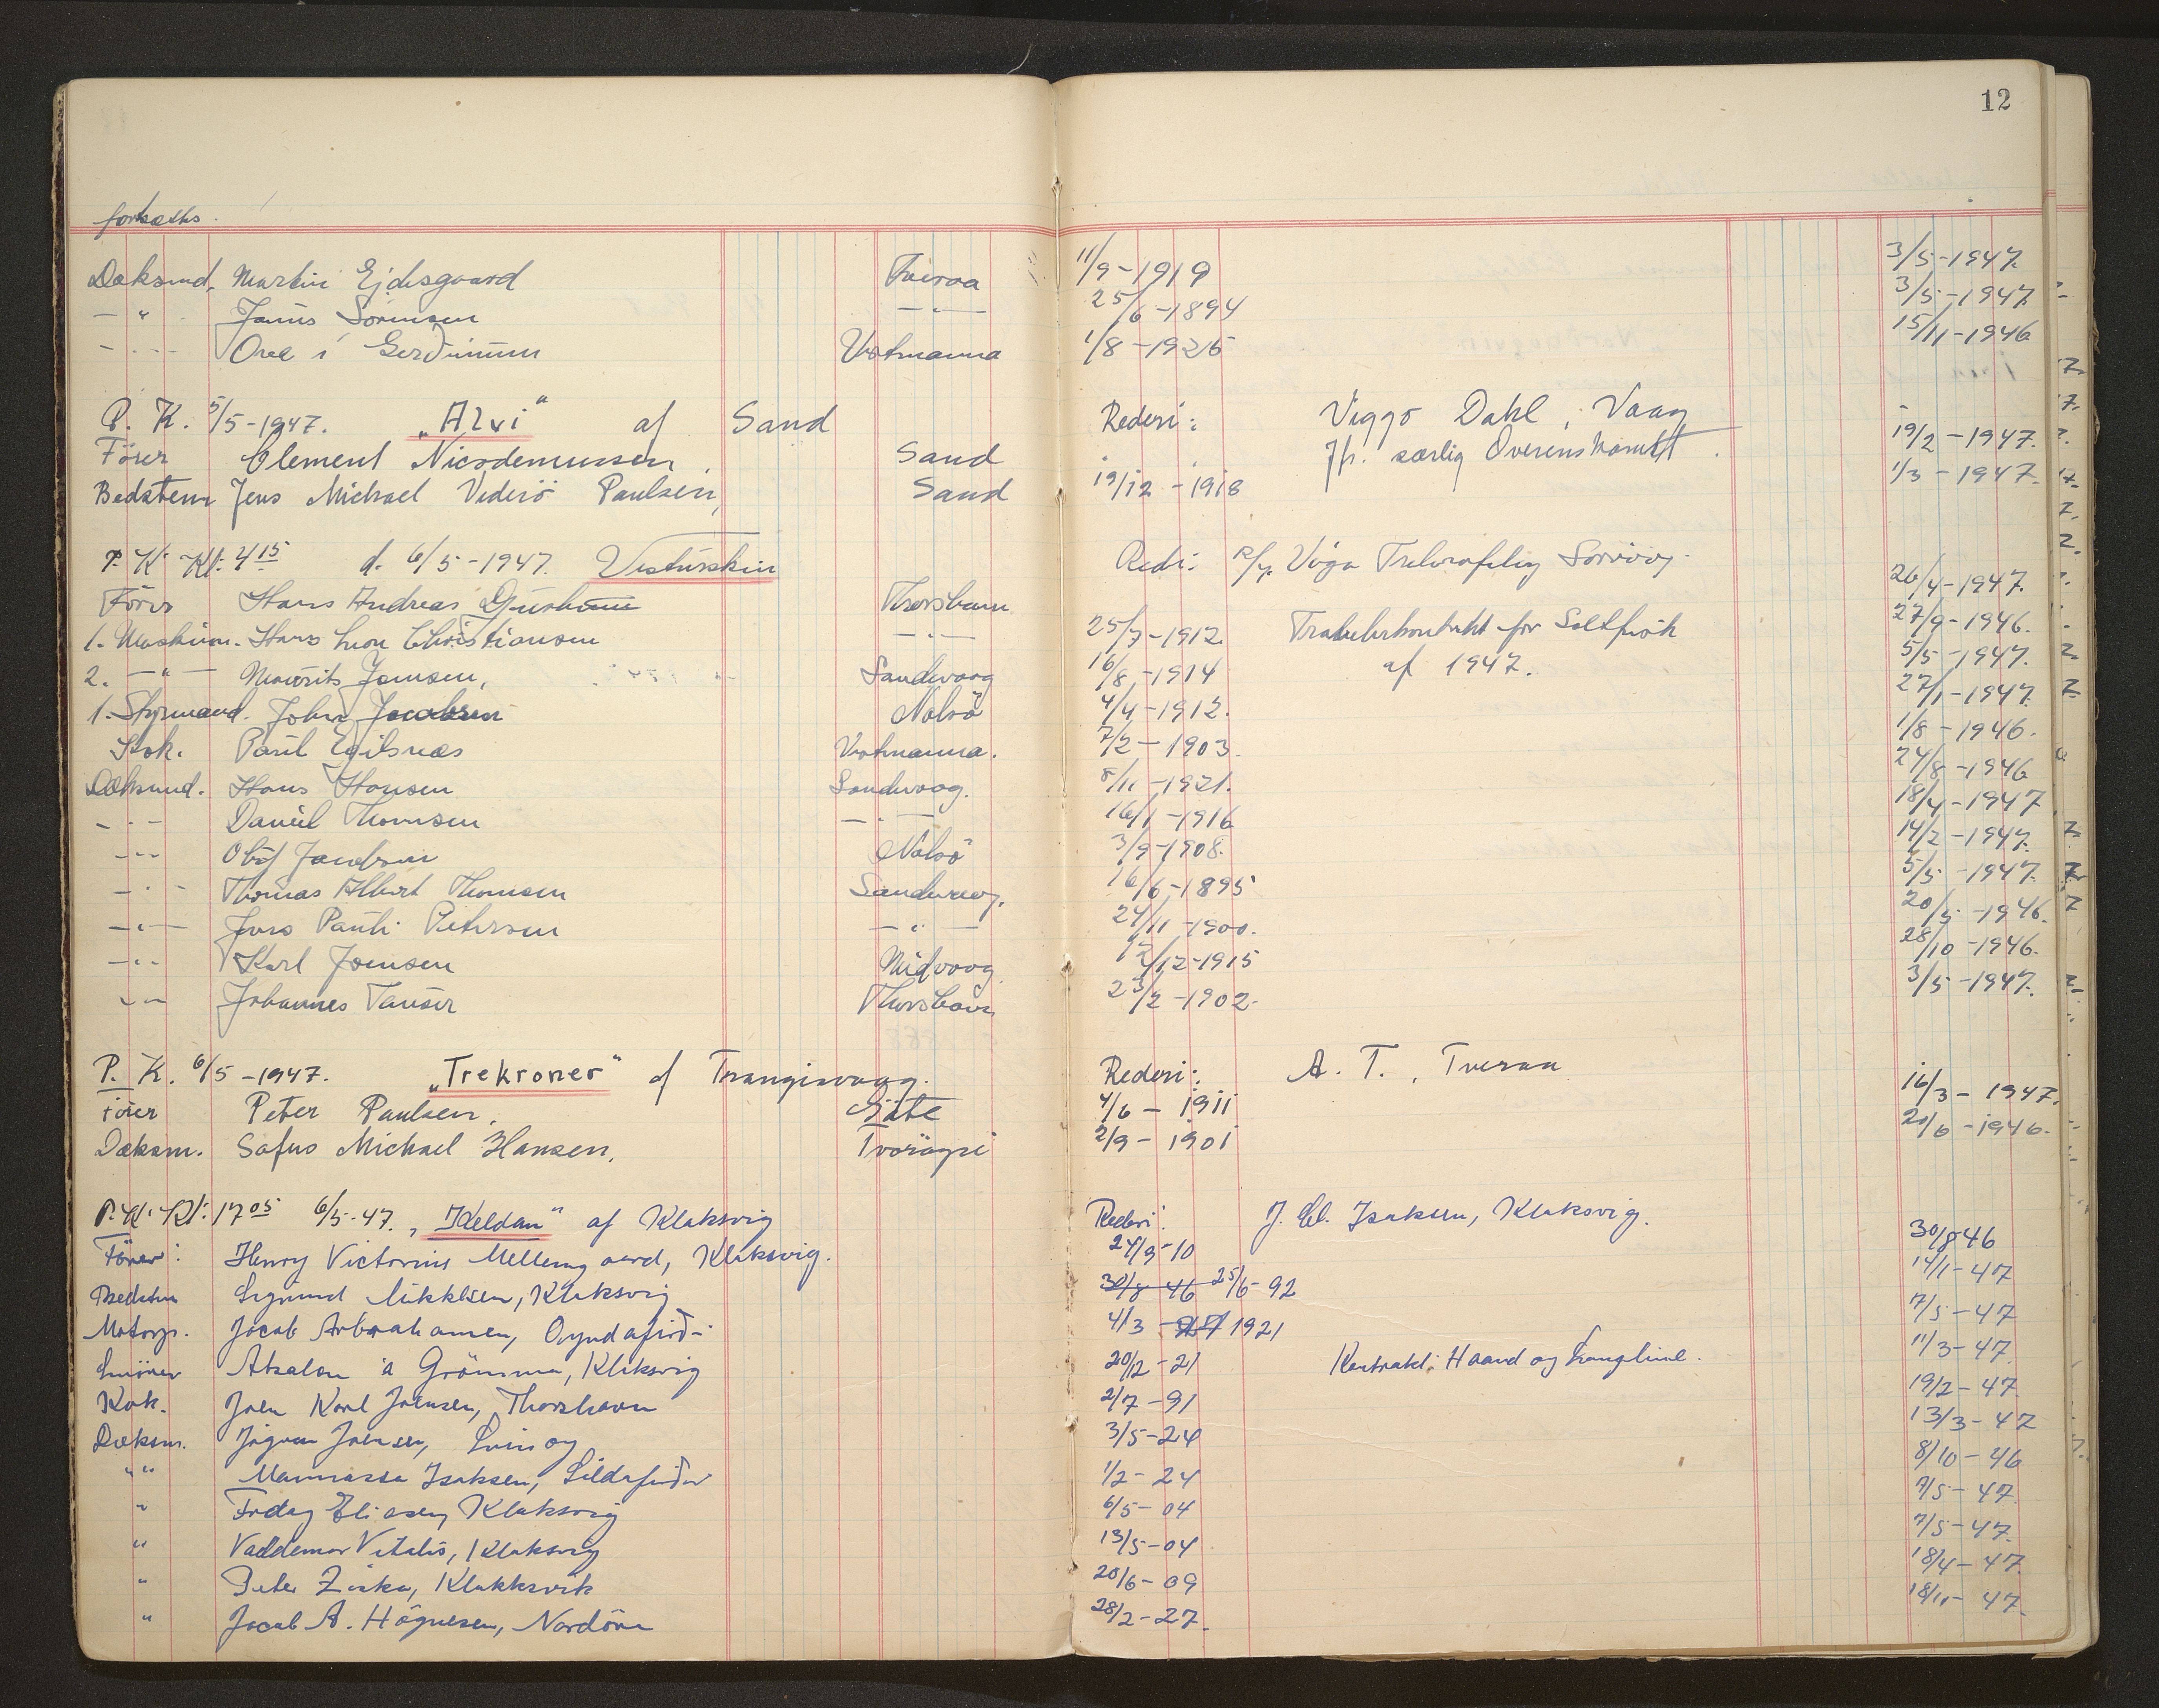 12
forsatts.
Dæksmd. Martin Ejdesgaard Tveraa 11/9-1919 3/5-1947.
— " — Janus Sørensen — " — 25/6-1894 3/5-1947
— " — Ove í Gerðinum Vestmanna 1/8-1925 15/11-1946
P. K. 5/5-1947. „Alvi" af Sand Rederi: Viggo Dahl, Vaag
Förer Clement Nicodemussen, Sand Jfr. særlig Overenskomst. 19/2-1947.
Bedstem Jens Michael Viderö Paulsen, Sand 19/12-1918 1/3-1947.
P. K. Kl. 4 15 d. 6/5-1947. Vesturskin Redi: P/f. Vága Sørvaag
Förer Hans Andreas Thorshavn 26/4-1947.
1. Maskinm. Hans Christiansen — " — 25/7-1912. Trawlerkontrakt for Saltfisk 27/9-1946.
2. — " — Mourits Joensen, Sandvaag 16/8-1914 af 1947. 5/5-1947.
1. Styrmand. John Jacobsen Nolsö 4/4-1912. 27/1-1947.
Kok. Paul Egilsnæs Vestmanna. 7/2-1903. 1/8-1946.
Dæksmd. Hans Hansen Sandvaag. 8/11-1921. 24/8-1946
— " — Daniel Thomsen — " — 16/1-1916 18/4-1947
— " — Olaf Jacobsen Nolsö 3/9-1908. 14/2-1947.
— " — Thomas Albert Thomsen Sandvaag. 16/6-1895 5/5-1947.
— " — Jens Pauli Petersen — " — 24/11-1900. 20/5-1946.
— " — Karl Joensen Midvaag 12/12-1915 28/10-1946.
— " — Johannes Tausen Thorshavn 23/2-1902. 3/5-1947.
P. K. 6/5-1947. „Trekroner" af Trangisvaag. Rederi: A. T. Tveraa
Förer Peter Paulsen, Gåte 4/6-1911 16/3-1947.
Dæksm. Sofus Michael Hansen, Tvöroyri 2/9-1901 20/6-1946.
P. K. Kl. 17 05 6/5-47. „Keldan" af Klaksvig Rederi: J. Cl. Isaksen, Klaksvig.
Förer: Henry Victorius Mellemgaard, Klaksvig. 24/9-10 30/8-46
Bedstm Sigmund Mikkelsen, Klaksvig 30/8 46 25/6-92 14/1-47
Motorp. Jacob Arbrahamsen, Oyndafirð- 4/3-1921 7/5-47
Smörer Absalon á Grömma, Klaksvig 20/12-21 Kontrakt: Haand og Langline. 11/3-47
Kok. Joen Karl Joensen, Thorshavn 2/7-91 19/2-47
Dæksm. Jógvan Joensen, Svinoy 3/5-24 13/3-47
" " Mannassa Isaksen, Sildafirði 1/2-24 8/10-46
" Frday Eliasen, Klaksvig 6/5-04 7/5-47
" Valdemar Vitalis, Klaksvig 13/5-04 7/5-47.
" Peter Ziska, Klakksvik 20/6-09 18/4-47.
" Jacob A. Högnesen, Nordöre 28/2-27. 18/11-47.